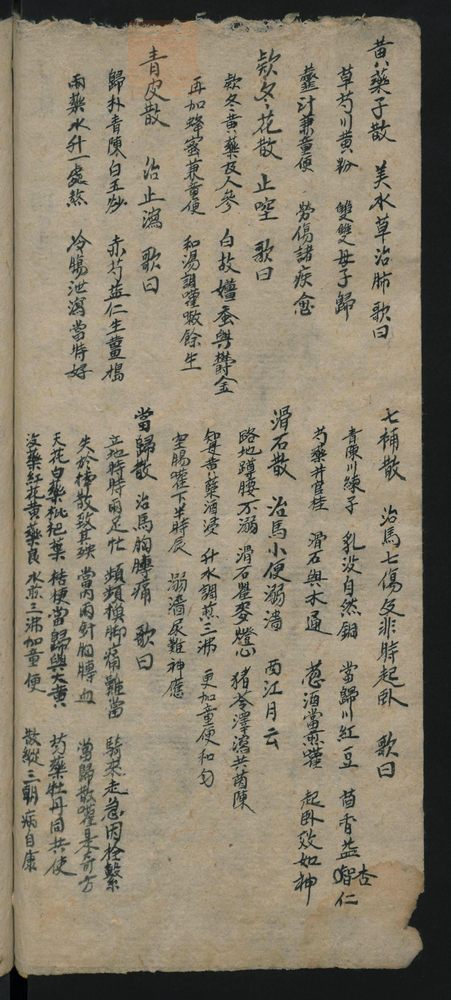 黃藥子散 美水草治肺 歌曰
草芎川黃粉 雙雙母子歸
虀汁兼童便 勞傷諸疾愈
款冬花散 止㗋 歌曰
款冬黃藥及人參 白故殭蚕與欝金
再加蜂蜜兼童便 和湯調嚾嗽餘生
青皮散 治止瀉 歌曰
歸朴青陳白五炒 赤芍益仁生薑搗
兩藥水升一處熬 冷腸泄瀉當時好
七補散 治馬七傷及非時起臥 歌曰
青陳川練子 乳没自然銅 當歸川紅豆 茴香益智仁
杏
芍藥并官桂 滑石與木通 葱酒當煎嚾 起臥效如神
滑石散 治馬小便溺濇 西江月云
路地蹲腰不溺 滑石瞿麥燈心 猪苓澤瀉共茵陳
知母黃藥酒浸 升水調煎三沸 更加童便和勻
空腸嚾下半時辰 溺濇尿難神應
當歸散 治馬胸膊痛 歌曰
立地時時兩足忙 頻頻換脚痛難當 騎来走急因栓繫
失於榜散致其殃 當內兩針胸膊血 當歸散嚾是奇方
天花白藥枇杷葉 桔梗當歸與大黃 芍藥牡丹同共使
没藥紅花黃藥良 水煎三沸加童便 散縱三朝病自康